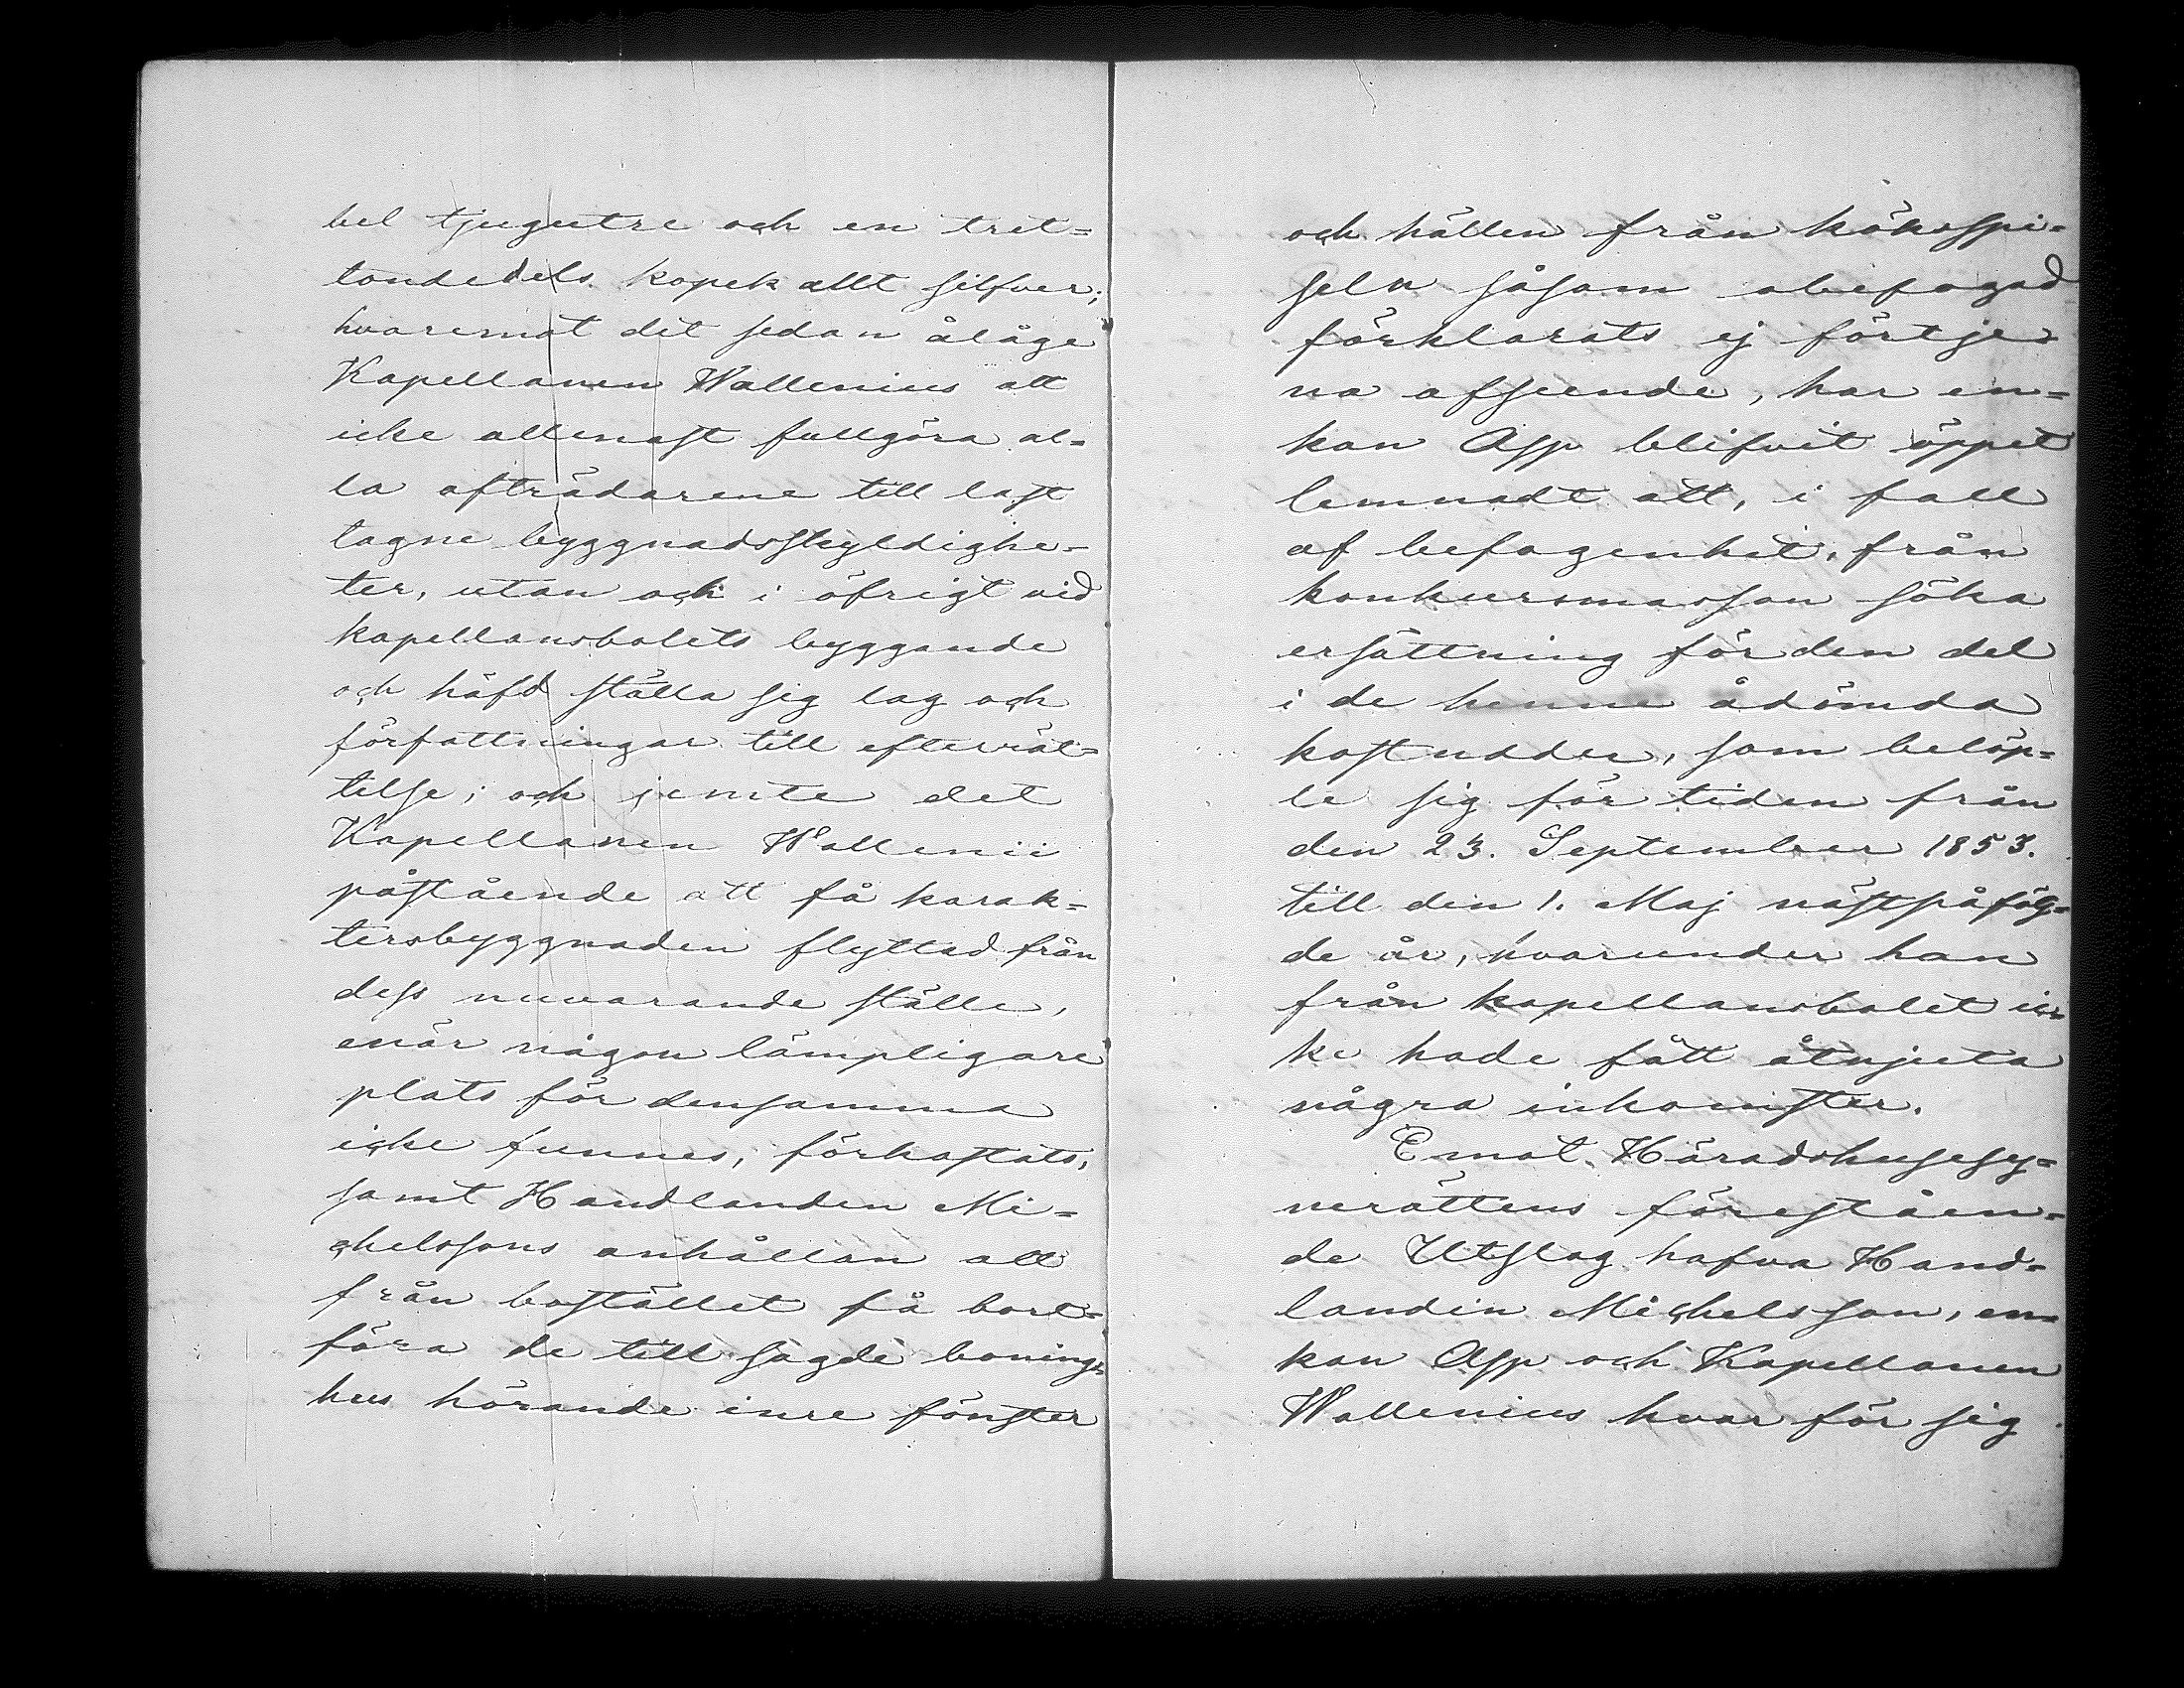 bel tjugutre och en tret-
tondedels kopek allt silfver;
hvaremot det sedan ålåge
Kapellanen Wallenius att
icke allenast fullgöra al-
la afträdarene till last
tagne byggnadsskyldighe-
ter, utan och i öfrigt vid
kapellansbolets byggande
och häfd ställa sig lag och
författningar till efterrät-
telse; och jemte det
Kapellanen Wallenii
påstående att få karak-
tersbyggnaden flyttad från
dess nuvarande ställe,
enär någon lämpligare
plats för densamma
icke funnes, förkastats,
samt Handlanden Mi-
chelssons anhållan att
från bostället få bort-
föra de till sagde bonings-
hus hörande inre fönster
och hällen från köksspi-
seln såsom obefogad
förklarats ej förtje-
na afseende, har en-
kan Asp blifvit öppet
lemnadt att, i fall
af befogenhet, från
konkursmassan söka
ersättning för den del
i de henne ådömda
kostnader, som belöp-
te sig för tiden från
den 23. September 1853.
till den 1. Maj nästpåfög-
de år, hvarunder han
från kapellansbolet ic-
ke hade fått åtnjuta
några inkomster.
Emot Häradshusesy-
nerättens föreståen-
de Utslag hafva Hand-
landen Michelsson, en-
kan Asp och Kapellanen
Wallenius hvar för sig